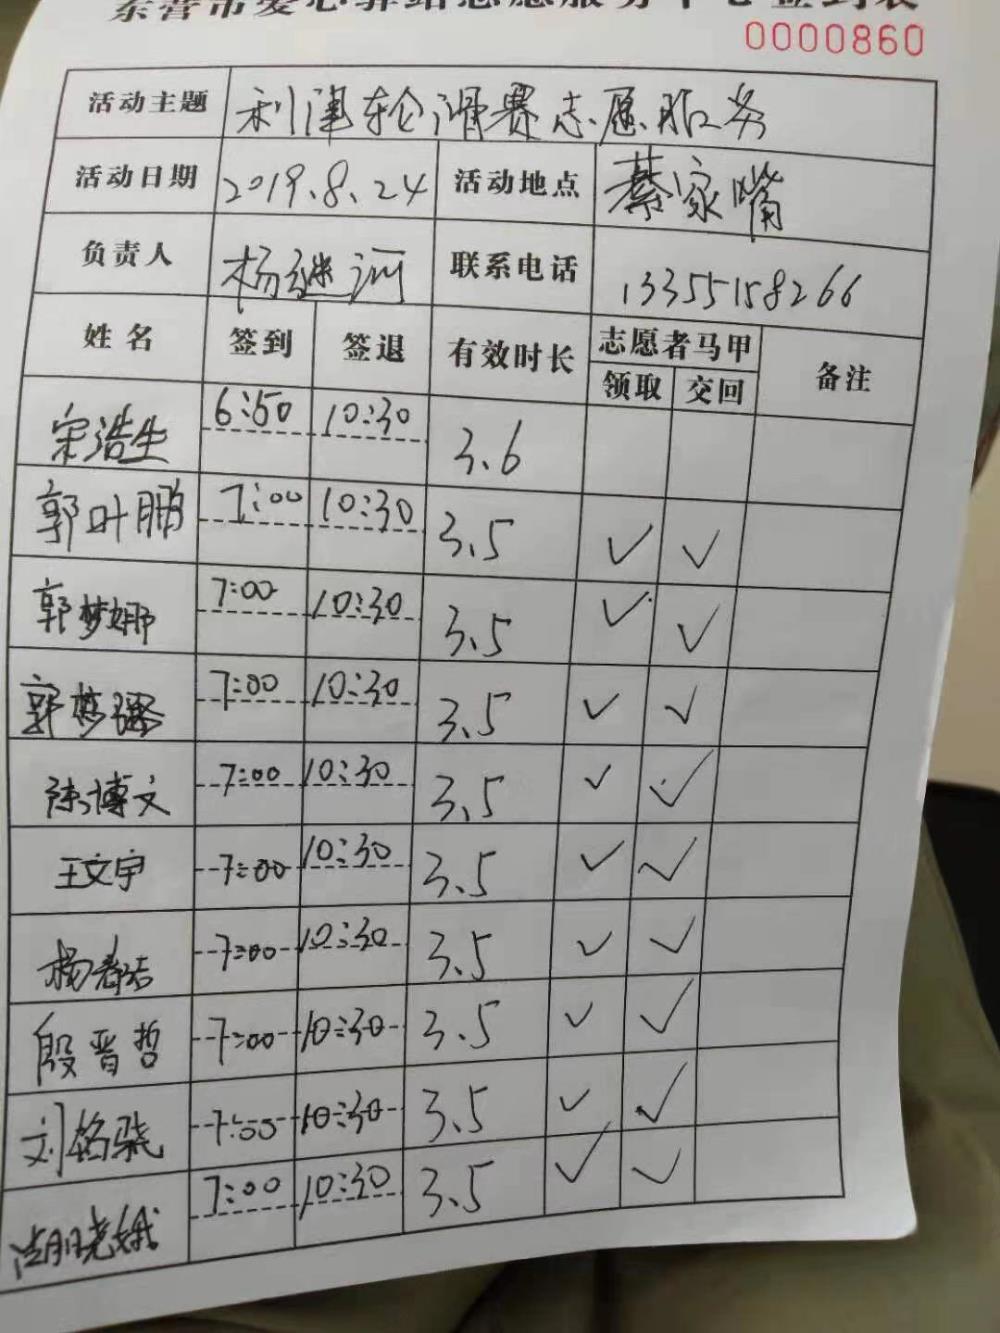 东营市爱心驿站志愿服务中心签到表
0000860
活动主题 利津轮滑赛志愿服务
活动日期 2019.8.24 活动地点 綦家嘴
负责人 杨继河 联系电话 13355158266
姓名 签到 签退 有效时长 志愿者马甲 备注
领取 交回
宋浩生 6:50 10:30 3.6
郭叶鹏 7:00 10:30 3.5 ✓ ✓
郭梦娜 7:00 10:30 3.5 ✓ ✓
郭梦璐 7:00 10:30 3.5 ✓ ✓
陈博文 7:00 10:30 3.5 ✓ ✓
王文宇 7:00 10:30 3.5 ✓ ✓
杨春洁 7:00 10:30 3.5 ✓ ✓
殷晋哲 7:00 10:30 3.5 ✓ ✓
刘铭骁 7:00 10:30 3.5 ✓ ✓
7:00 10:30 3.5 ✓ ✓